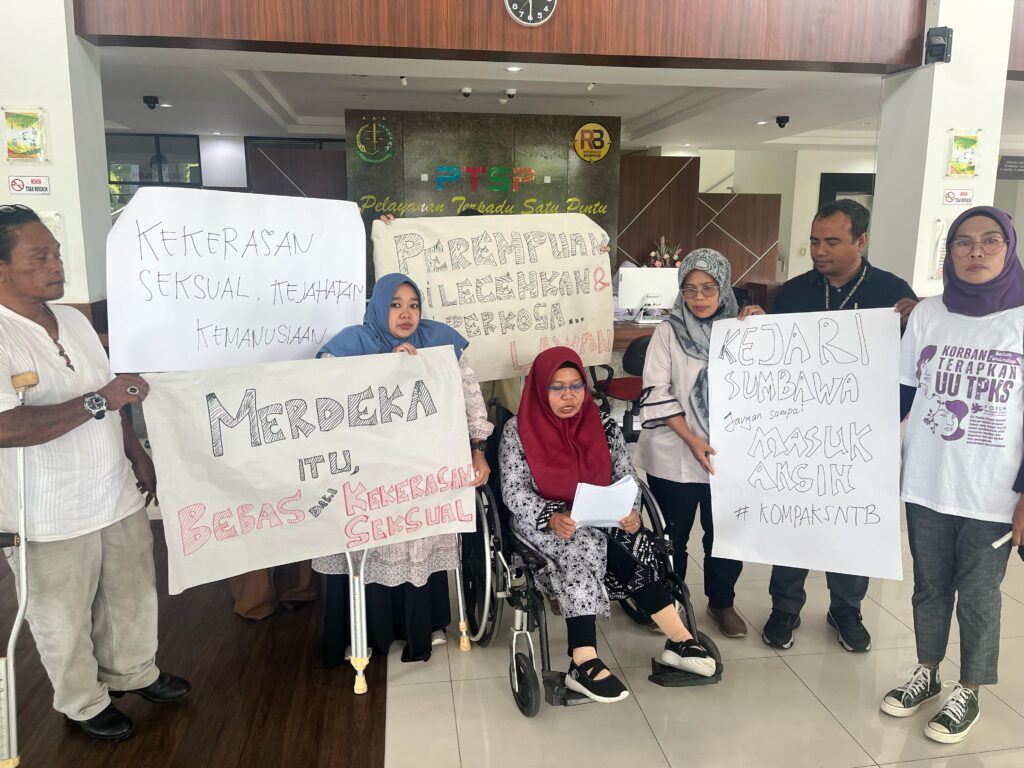 PTSP
Pelayanan Terpadu Satu Pintu
RB
KEKERASAN
SEKSUAL, KEJAHATAN
KEMANUSIAAN
PEREMPUAN
DILECEHKAN &
PERKOSA...
LAWAN
MERDEKA
ITU,
BEBAS DARI KEKERASAN
SEKSUAL
KEJARI
SUMBAWA
Jangan sampai
MASUK
ANGIN
# KOMPAKSNTB
KORBAN
TERAPKAN
UU TPKS
MOHON
TIDAK MEROKOK